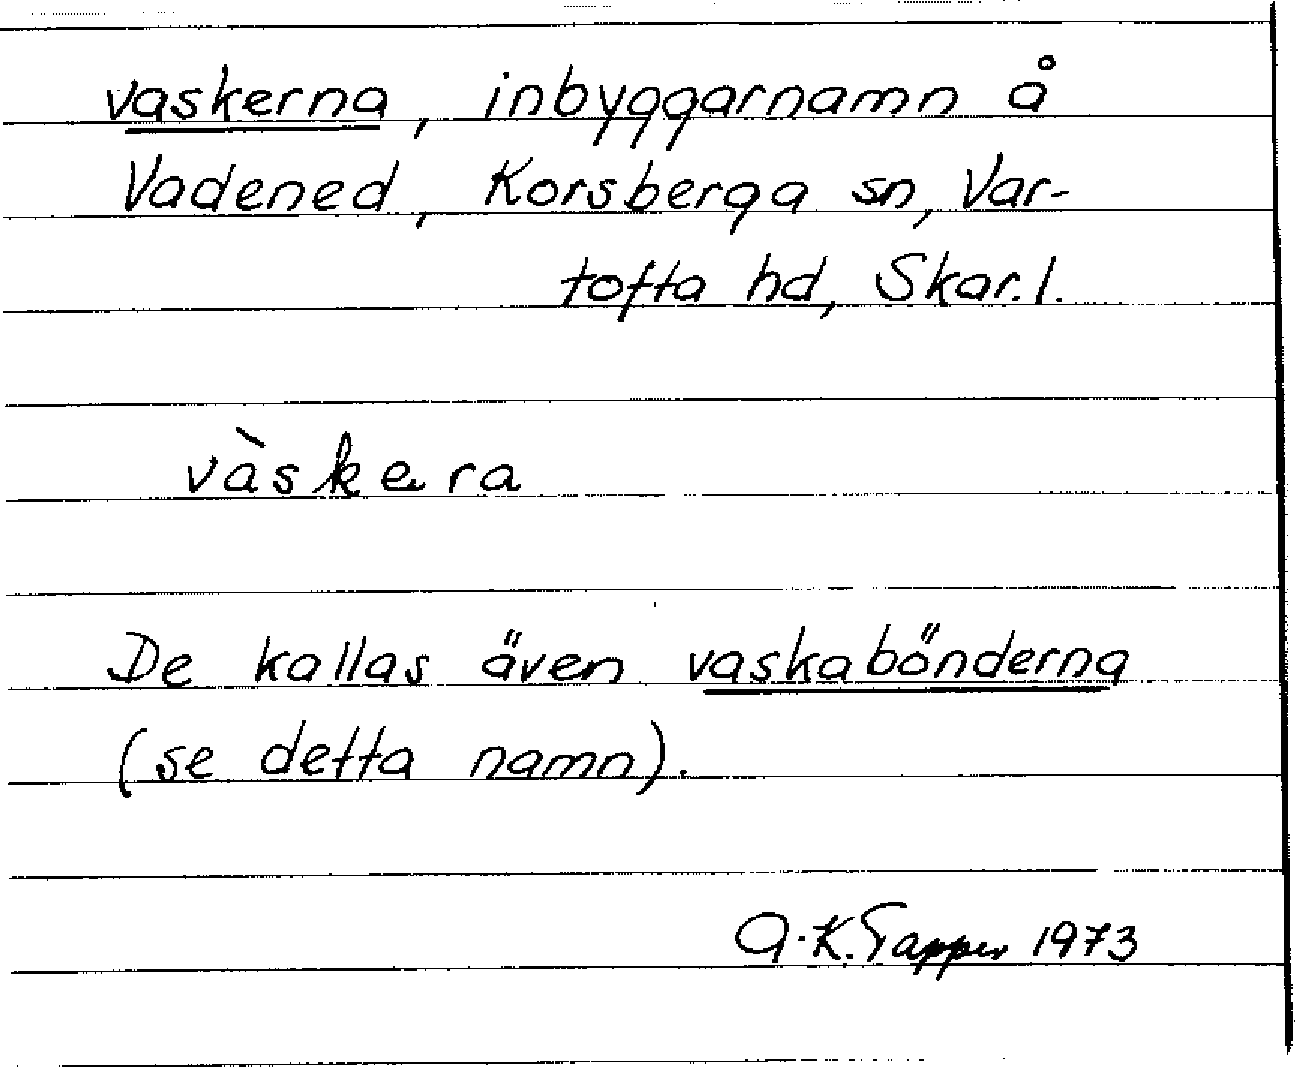 vaskerna, inbyggarnamn å
Vadened, Korsberga sn, Var-
tofta hd, Skar. l.
vàskera
De kallas även vaskabönderna
(se detta namn).
A.K. Tapper 1973